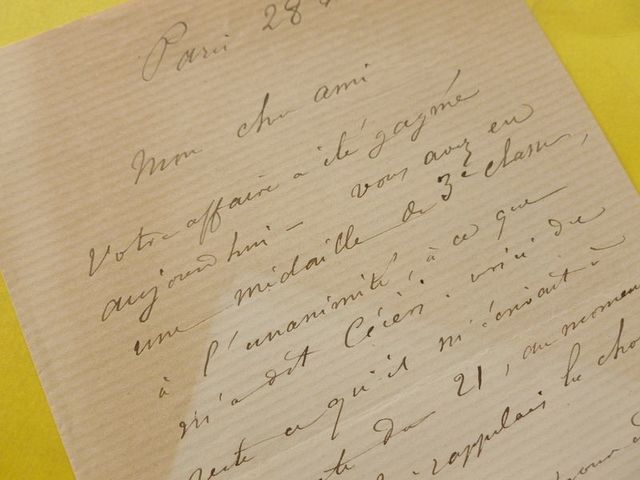 Paris 28
Mon cher ami
Votre affaire a été gagnée
aujourd'hui – vous avez eu
une médaille de 3e classe,
à l'unanimité, à ce que
m'a dit voici du
reste ce qu'il m'écrivait à
du 21, au moment
rappelais la